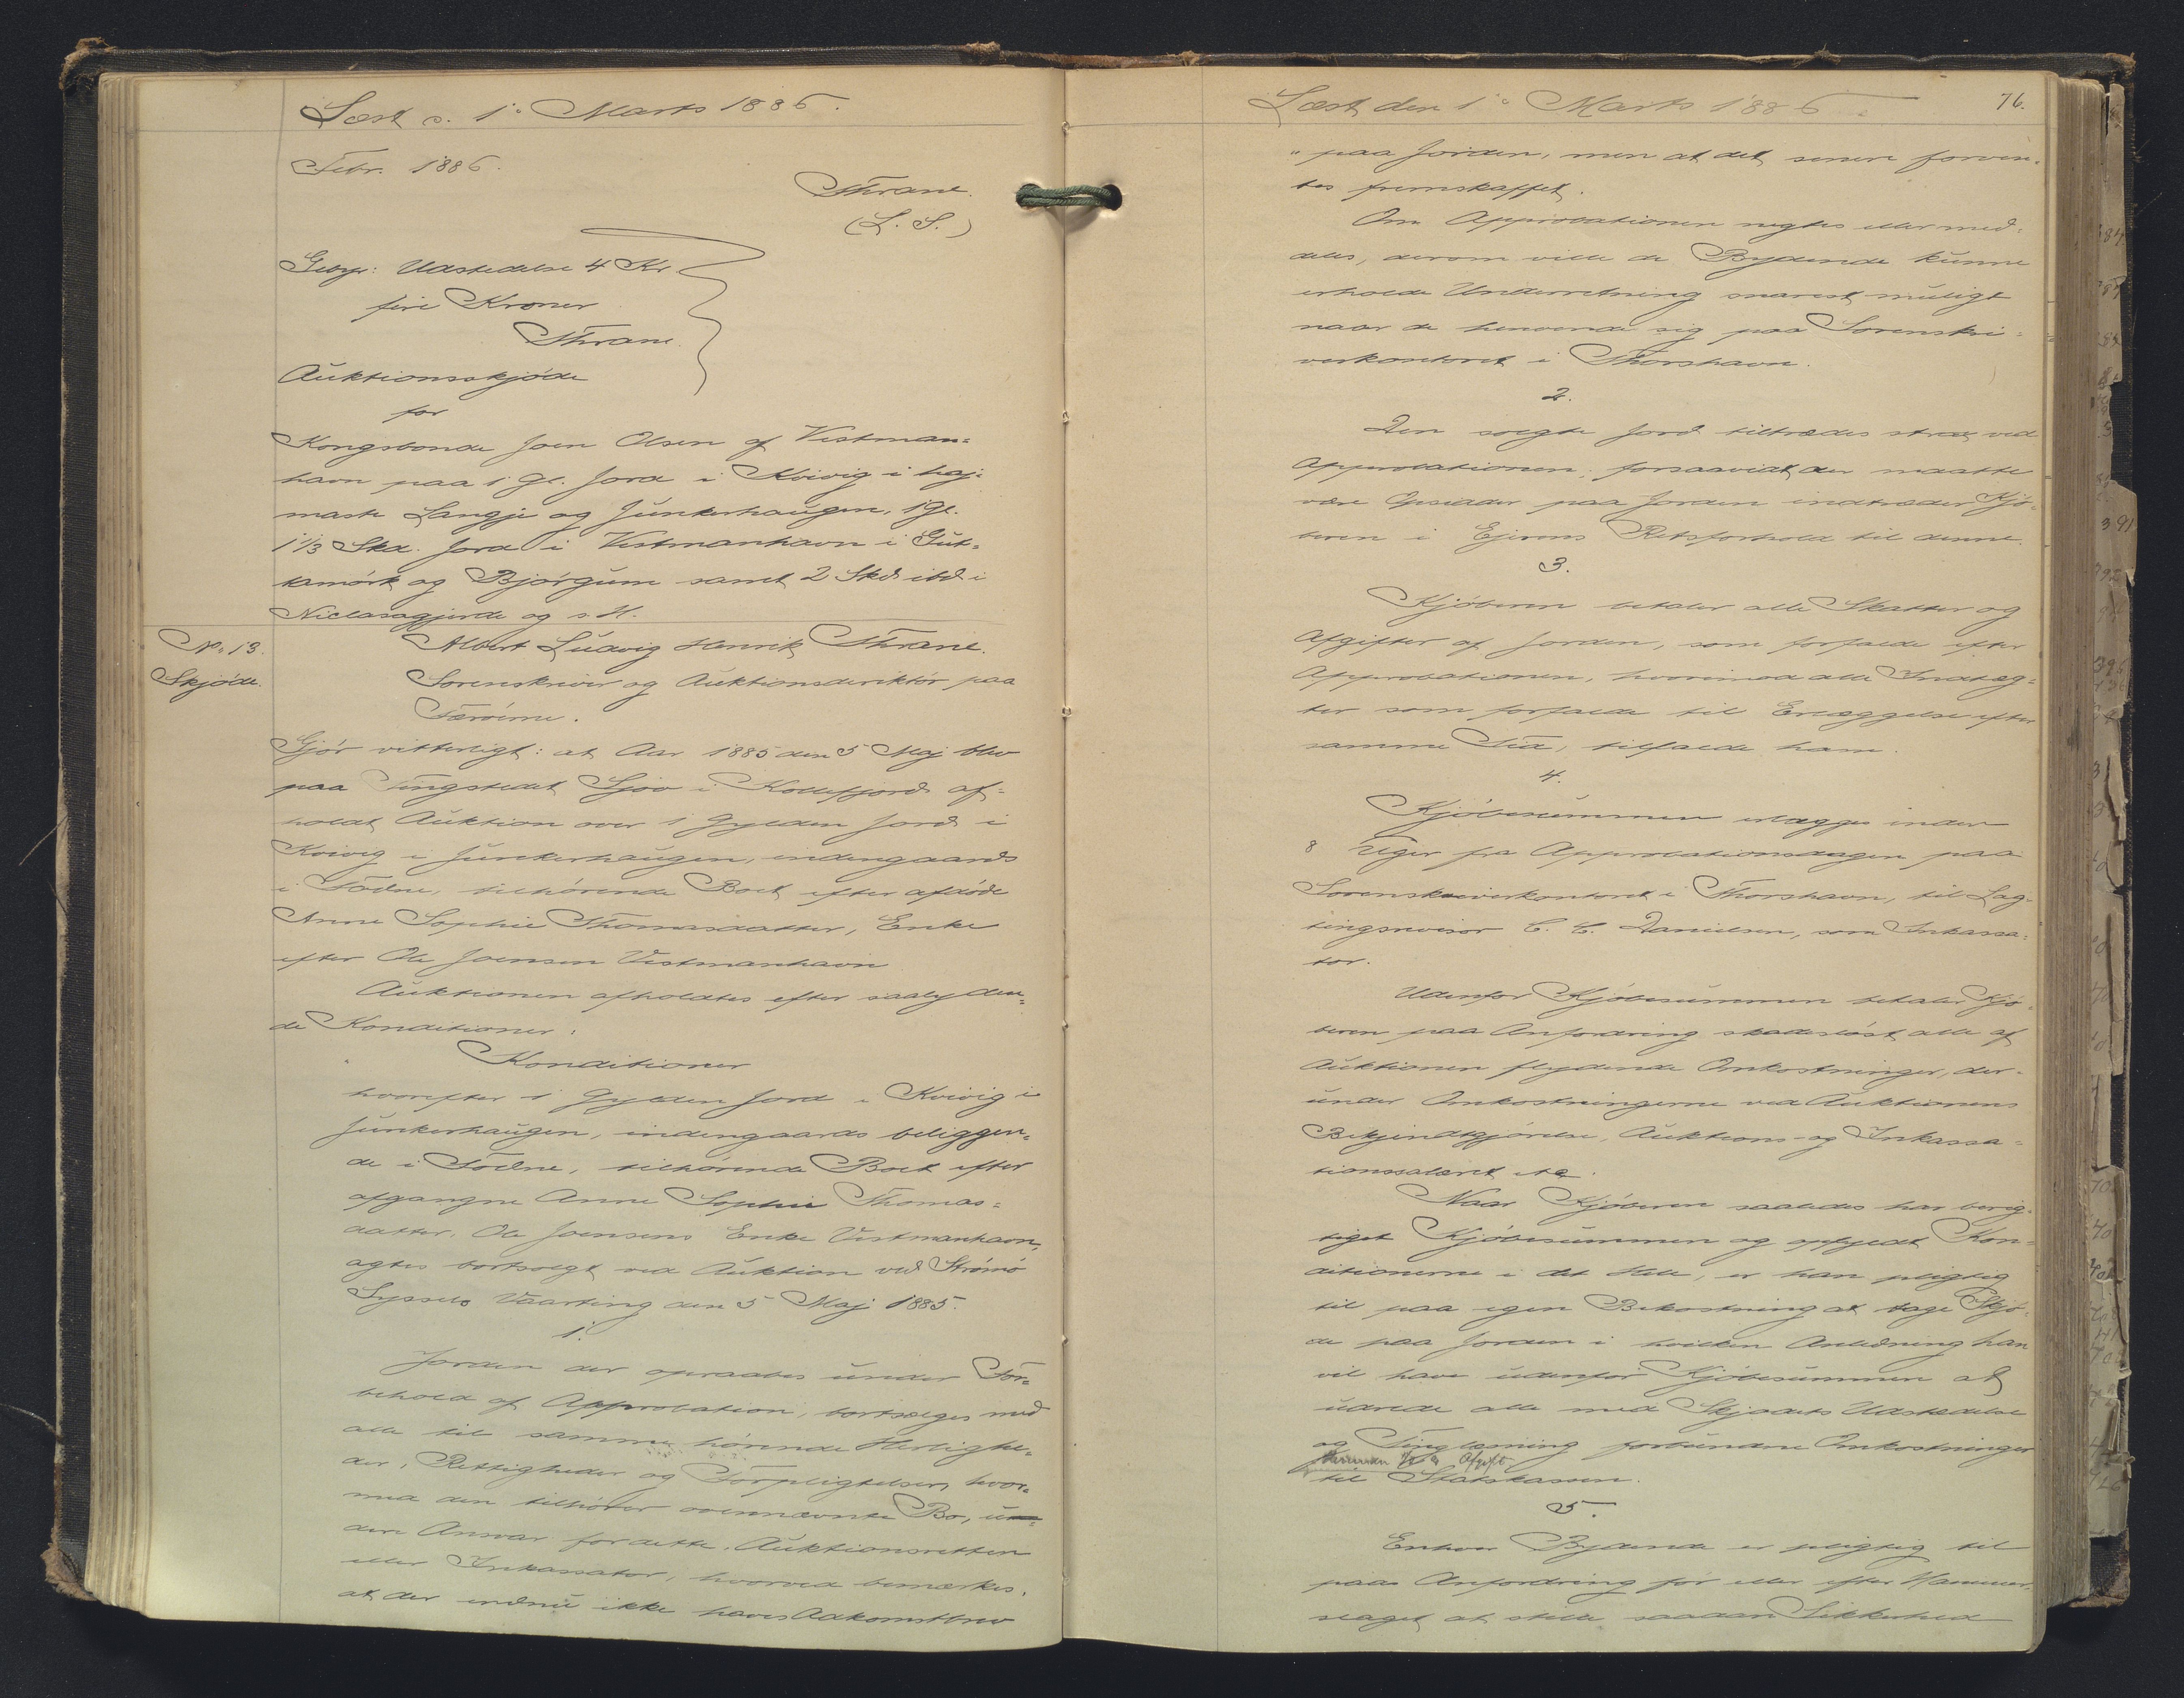 Læst d. 1º Marts 1886.
Febr. 1886.
Thrane.
(L. S.)
Gebyr: Udstedelse 4 Kr.
fire Kroner
Thrane.
Auktionsskjøde
for
Kongsbonde Joen Olsen af Vestman=
havn paa 1 Gl. Jord i Kvivig i haj=
maste Langje og Junkerhaugen, 1 Gl.
1 1/3 Skd. Jord i Vestmanhavn i Gut=
tamørk og Bjørgum samt 2 Skd. ibd. i
Niclasagjerde og s. H.
No. 13.
Skjøde.
Albert Ludvig Henrik Thrane.
Sorenskriver og Auktionsdirektør paa
Færøerne.
Gjør vitterligt: at Aar 1885 den 5 Maj blev
paa Tingstedet Sjov i Kollefjord af=
holdt Auktion over 1 Gylden Jord i
Kvivig i Junkerhaugen, indengaards
i Tødne, tilhørende Boet efter afdøde
Anne Sophie Thomasdatter, Enke
efter Ole Joensen Vestmanhavn
Auktionen afholdtes efter saalyden=
de Konditioner:
Konditioner
hvorefter 1 Gylden Jord i Kvivig i
Junkerhaugen, indengaards beliggen=
de i Tødne, tilhørende Boet efter
afgangne Anne Sophie Thomas=
datter, Ole Joensens Enke Vestmanhavn,
agtes bortsolgt ved Auktion ved Strømø
Syssels Vaarting den 5 Maj 1885.
1.
Jorden der opraabes under For=
behold af Approbation, bortsælges med
alle til samme hørende Herlighe=
der, Rettigheder og Forpligtelser, hvor=
med den tilhører ovennævnte Bo, u=
den Ansvar for dette, Auktionsretten
eller Inkassator, hvorved bemærkes,
at der endnu ikke haves Adkomstbrev
Læst den 1º Marts 1886.
76.
" paa Jorden, men at det senere forven=
tes fremskaffet.
Om Approbationen negtes eller med=
deles, derom ville de Bydende kunne
erholde Underretning snarest muligt
naar de henvende sig paa Sorenskri=
verkontoret i Thorshavn.
2.
Den solgte Jord tiltrædes strax ved
Approbationen; forsaavidt der maatte
være Opsidder paa Jorden indtræder Kjø=
beren i Ejerens Retsforhold til denne.
3.
Kjøberen betaler alle Skatter og
Afgifter af Jorden, som forfalde efter
Approbationen, hvorimod alle Indtæg=
ter som forfalde til Erlæggelse efter
samme Tid, tilfalde ham.
4.
Kjøbesummen erlægges inden
8 Uger fra Approbationsdagen paa
Sorenskriverkontoret i Thorshavn, til Lag=
tingsrevisor C. C. Danielsen, som Inkassa=
tor.
Udenfor Kjøbesummen betaler Kjø=
beren paa Anfordring skadesløst alle af
Auktionen flydende Omkostninger, der=
under Omkostningerne ved Auktionens
Bekjendtgjørelse, Auktions- og Inkassa=
tionssalæret etc.
Naar Kjøberen saaledes har berig=
tiget Kjøbesummen og opfyldt Kon=
ditionerne i det Hele, er han pligtig
til paa egen Bekostning at tage Skjø=
de paa Jorden i hvilken Anledning han
vil have udenfor Kjøbesummen at
udrede alle med Skjødets Udstedelse
og Tinglæsning forbundne Omkostninger
herunder 1/2 % Afgift
til Statskassen.
5.
Enhver Bydende er pligtig til
paa Anfordring før eller efter Hammer=
slaget at stille saadan Sikkerhed